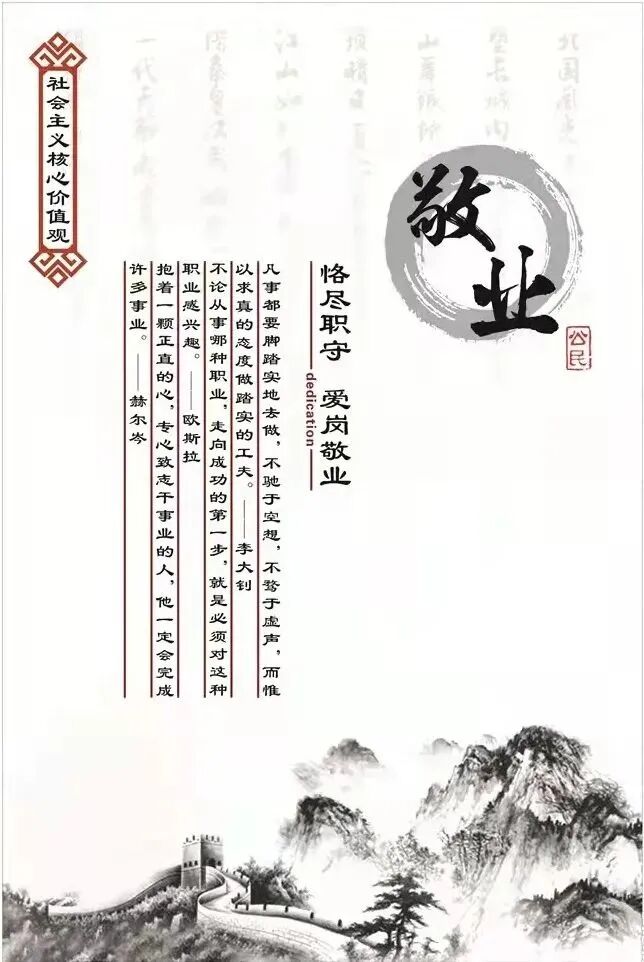 敬业
公民
恪尽职守 爱岗敬业
dedication
凡事都要脚踏实地去做，不驰于空想，不骛于虚声，而惟
以求真的态度做踏实的工夫。——李大钊
不论从事哪种职业，走向成功的第一步，就是必须对这种
职业感兴趣。——欧斯拉
抱着一颗正直的心，专心致志干事业的人，他一定会完成
许多事业。——赫尔岑
社会主义核心价值观